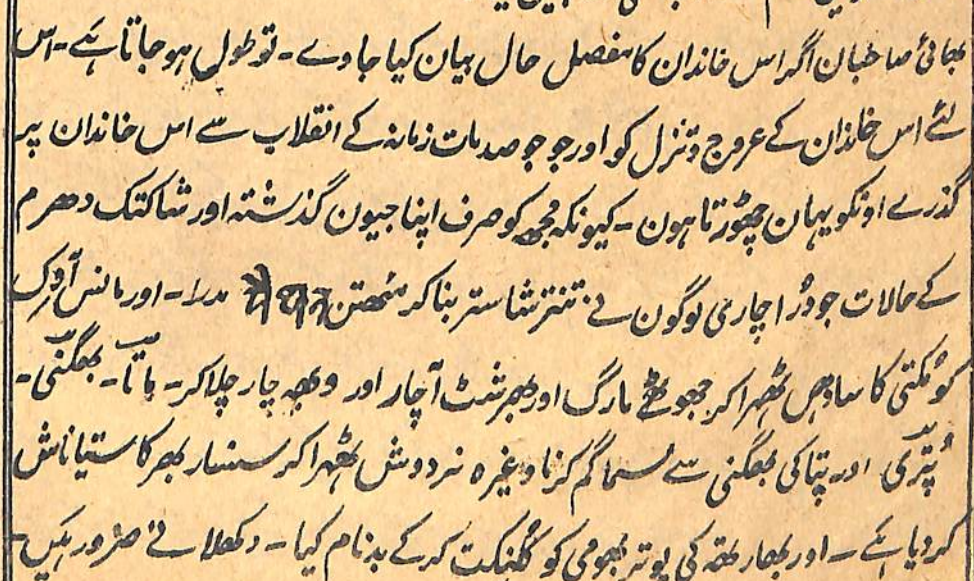 بھائی صاحبان اگر اس خاندان کا مفصل حال بیان کیا جاوے - تو طول ہو جاتا ہے - اس
لئے اس خاندان کے عروج و تنزل کو اور جو جو صدمات زمانہ کے انقلاب سے اس خاندان پر
گذرے اونکو یہان چھوڑتا ہون - کیونکہ مجھ کو صرف اپنا جیون گذشتہ اور شاکتک دھرم
کے حالات جو دُراچاری لوگون نے تنتر شاستر بنا کر مدرا - اور مانس آدک
کو مُکتی کا سادھن ٹھہرا کر جھوٹے مارگ اور بھرشٹ آچار اور وبھچار چلا کر - ماتا - بھگنی -
پُتری اور پتا کی بھگنی سے سماگم کرنا وغیرہ نردوش ٹھہرا کر سنسار بھر کا ستیاناش
کر دیا ہے - اور بھارتھ کی پوتر بھومی کو کلنکت کر کے بدنام کیا - دکھلانے ضرور ہیں -